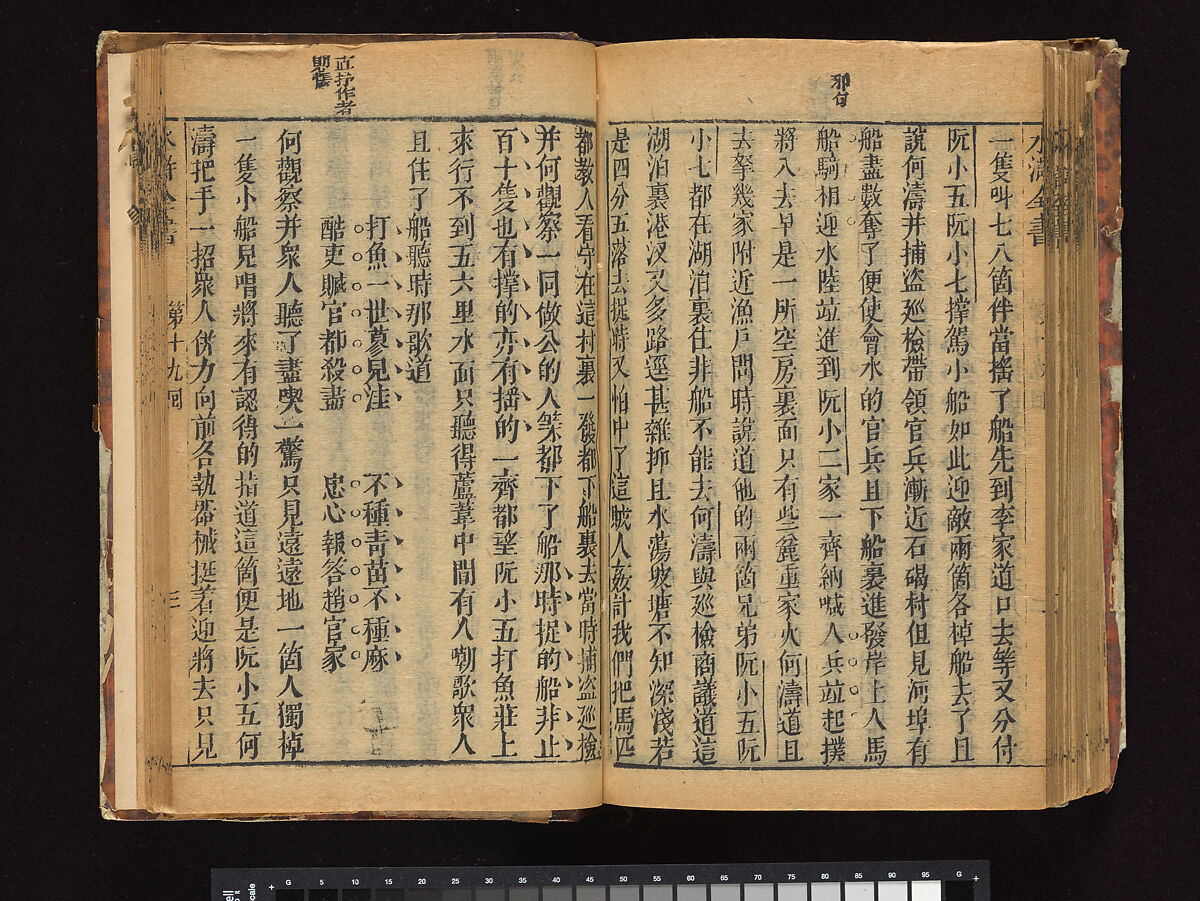 邪句
水滸全書
一隻呌七八箇伴當揺了船先到李家道口去等又分付
阮小五阮小七撑駕小船如此迎敵兩箇各棹船去了且
說何濤并捕盗廵檢帶領官兵漸近石碣村但見河埠有
船盡數奪了便使會水的官兵且下船裏進發岸上人馬
船騎相迎水陸竝進到阮小二家一齊納喊人兵竝起撲
將入去早是一所空房裏面只有些麄重家火何濤道且
去拏幾家附近漁戶問時說道他的兩箇兄弟阮小五阮
小七都在湖泊裏住非船不能去何濤與廵檢商議道這
湖泊裏港汊又多路逕甚雜抑且水蕩坡塘不知深淺若
是四分五落去捉時又怕中了這賊人奸計我們把馬匹
直抒作者
都教人看守在這村裏一發都下船裏去當時捕盗廵檢
并何觀察一同做公的人等都下了船那時捉的船非止
百十隻也有撑的亦有揺的一齊都望阮小五打魚莊上
來行不到五六里水面只聽得蘆葦中間有人嘲歌衆人
且住了船聽時那歌道
打魚一世蓼兒洼 不種青苗不種麻
酷吏贓官都殺盡 忠心報答趙官家
何觀察并衆人聽了盡喫一驚只見遠遠地一箇人獨棹
一隻小船兒唱將來有認得的指道這箇便是阮小五何
濤把手一招衆人併力向前各執器械挺着迎將去只見
第十九回 三